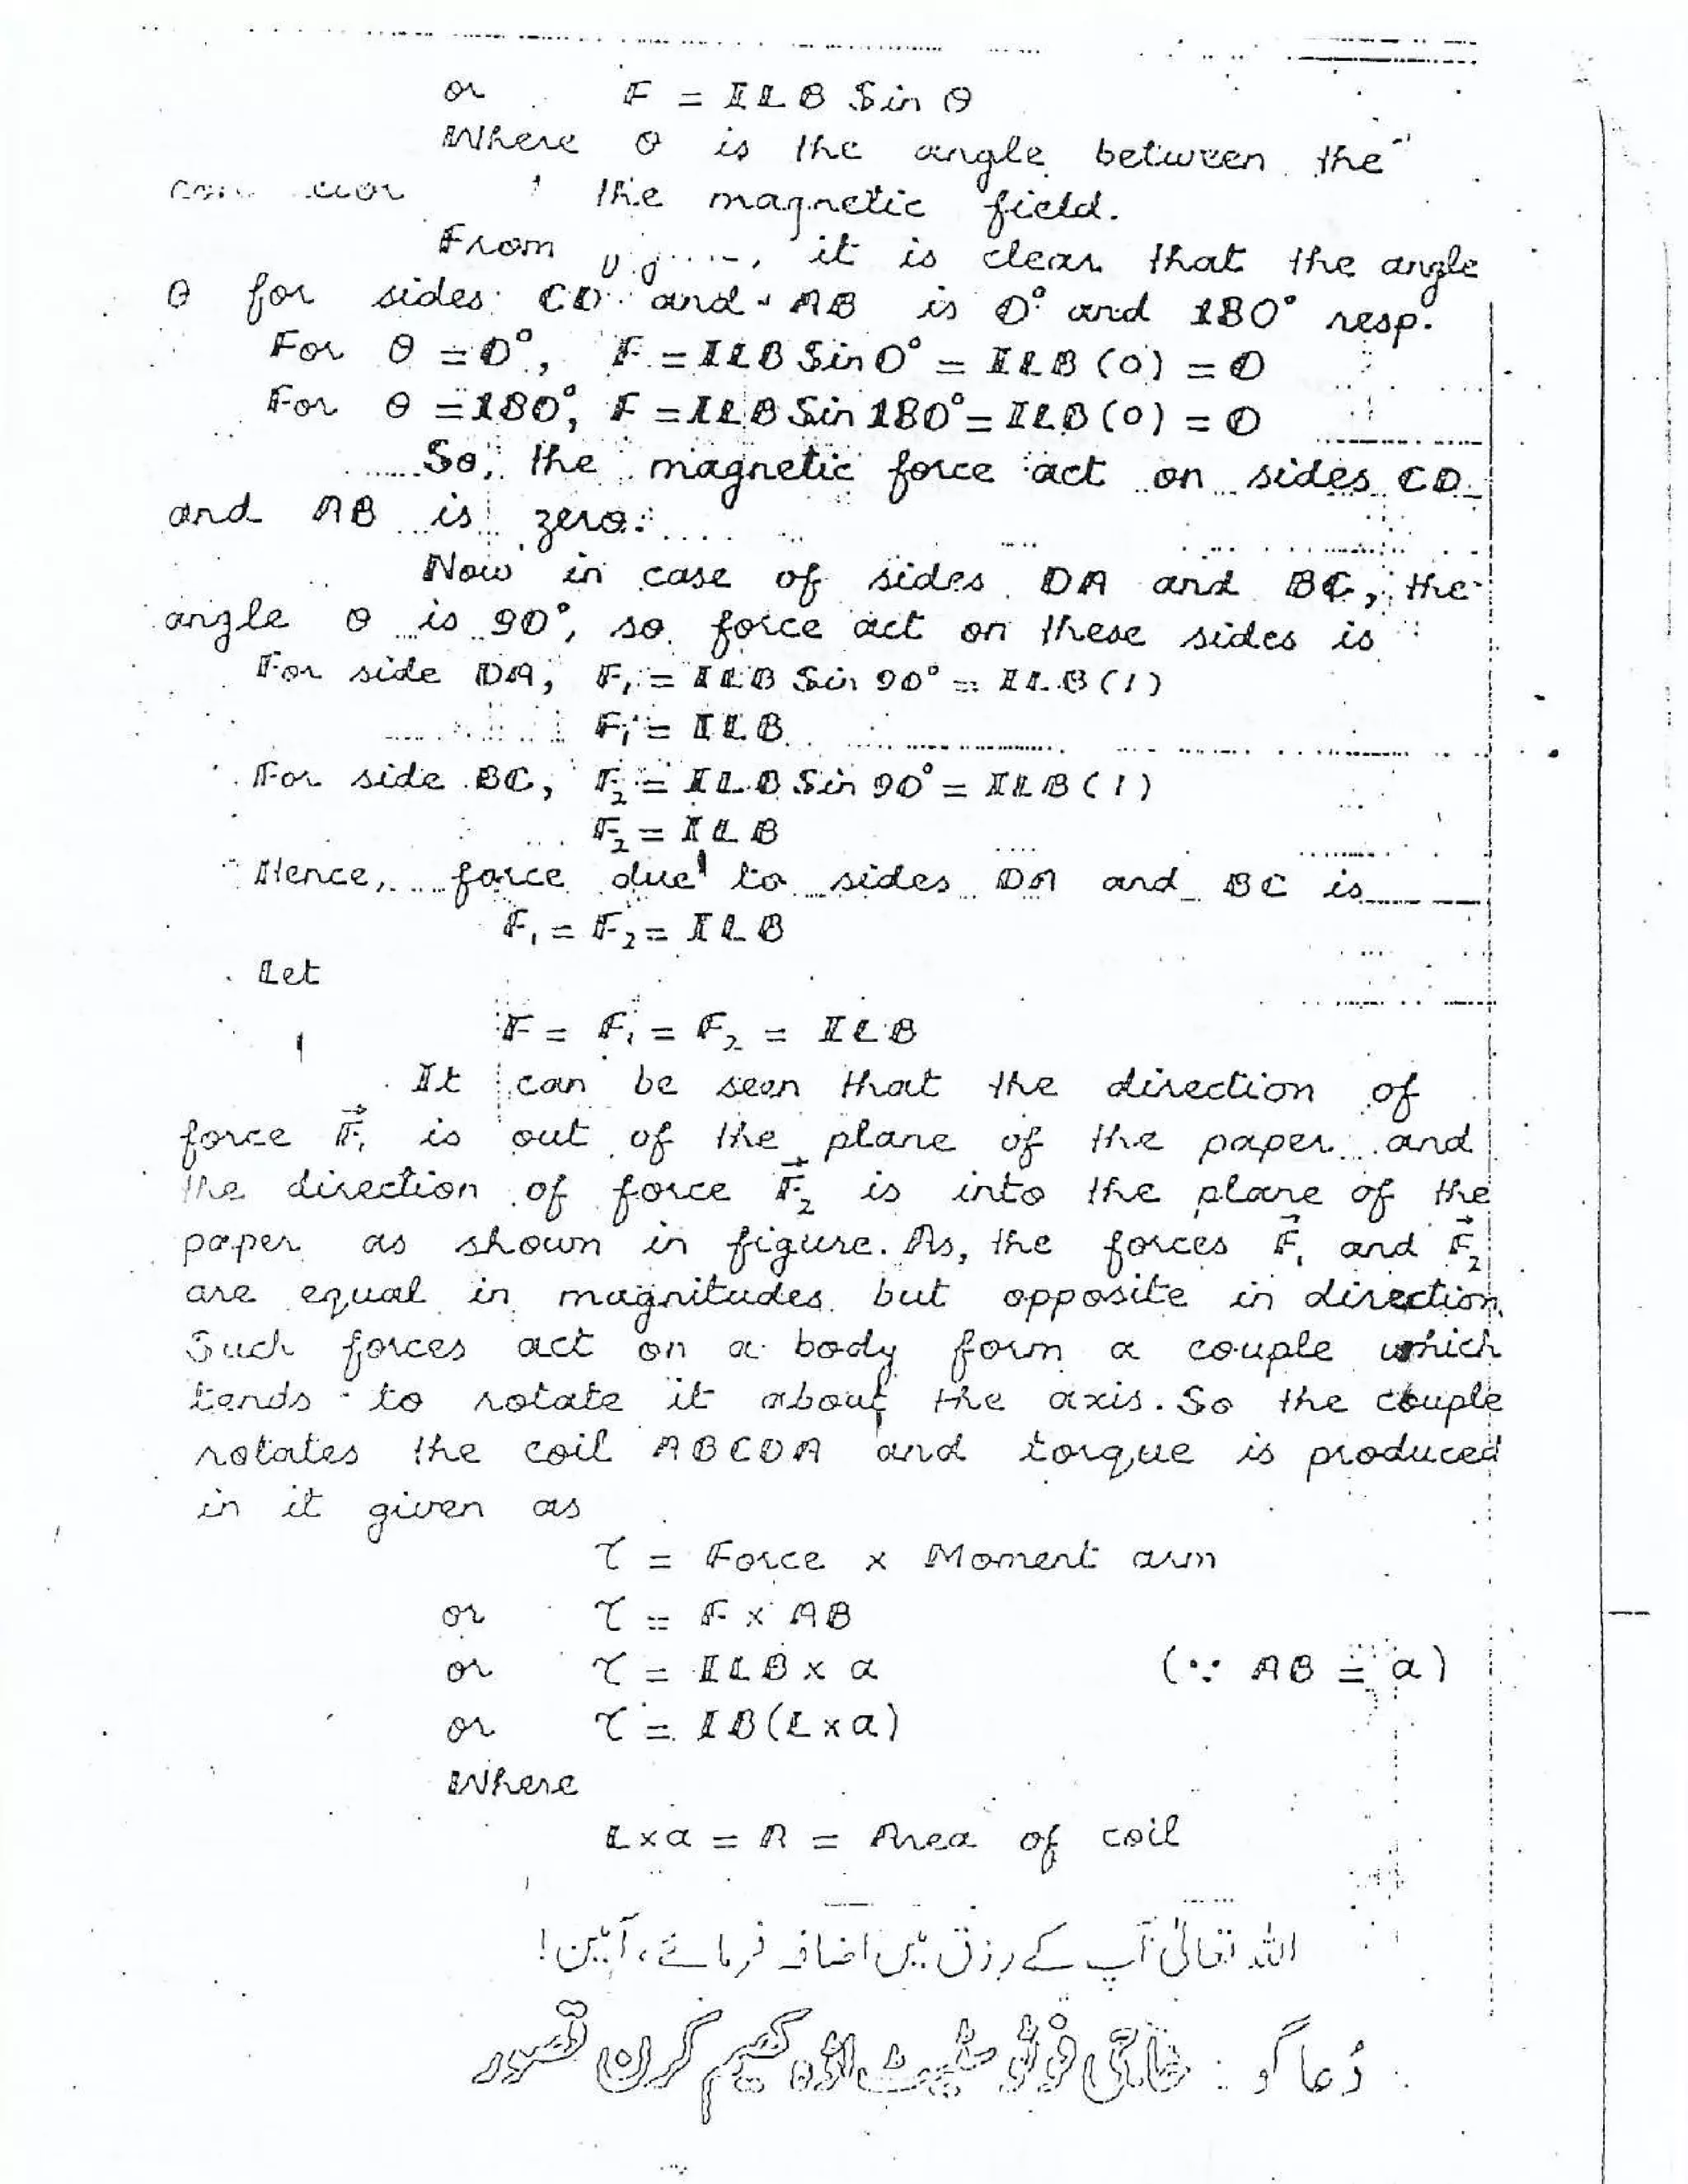 or F = ILB Sin θ
Where θ is the angle between the
the magnetic field.
From it is clear that the angle
θ for sides CD and AB is 0° and 180° resp.
For θ = 0°, F = ILB Sin 0° = ILB (0) = 0
For θ = 180°, F = ILB Sin 180° = ILB (0) = 0
So, the magnetic force act on sides CD
and AB is zero.
Now in case of sides DA and BC, the
angle θ is 90°, so force act on these sides is
For side DA, F₁ = ILB Sin 90° = ILB (1)
F₁ = ILB
For side BC, F₂ = ILB Sin 90° = ILB (1)
F₂ = ILB
Hence, force due to sides DA and BC is
F₁ = F₂ = ILB
Let
F = F₁ = F₂ = ILB
It can be seen that the direction of
force F⃗₁ is out of the plane of the paper and
the direction of force F⃗₂ is into the plane of the
paper as shown in figure. As, the forces F⃗₁ and F⃗₂
are equal in magnitudes but opposite in direction.
Such forces act on a body form a couple which
tends to rotate it about the axis. So the couple
rotates the coil ABCDA and torque is produced
in it given as
τ = Force × Moment arm
or τ = F × AB
or τ = ILB × a (∵ AB = a)
or τ = IB(L × a)
Where
L × a = A = Area of coil
اللہ تعالیٰ آپ کے رزق میں اضافہ فرمائے، آمین!
دُعا گو : حاجی فوٹو سٹیٹ اڈہ کھیم کرن قصور